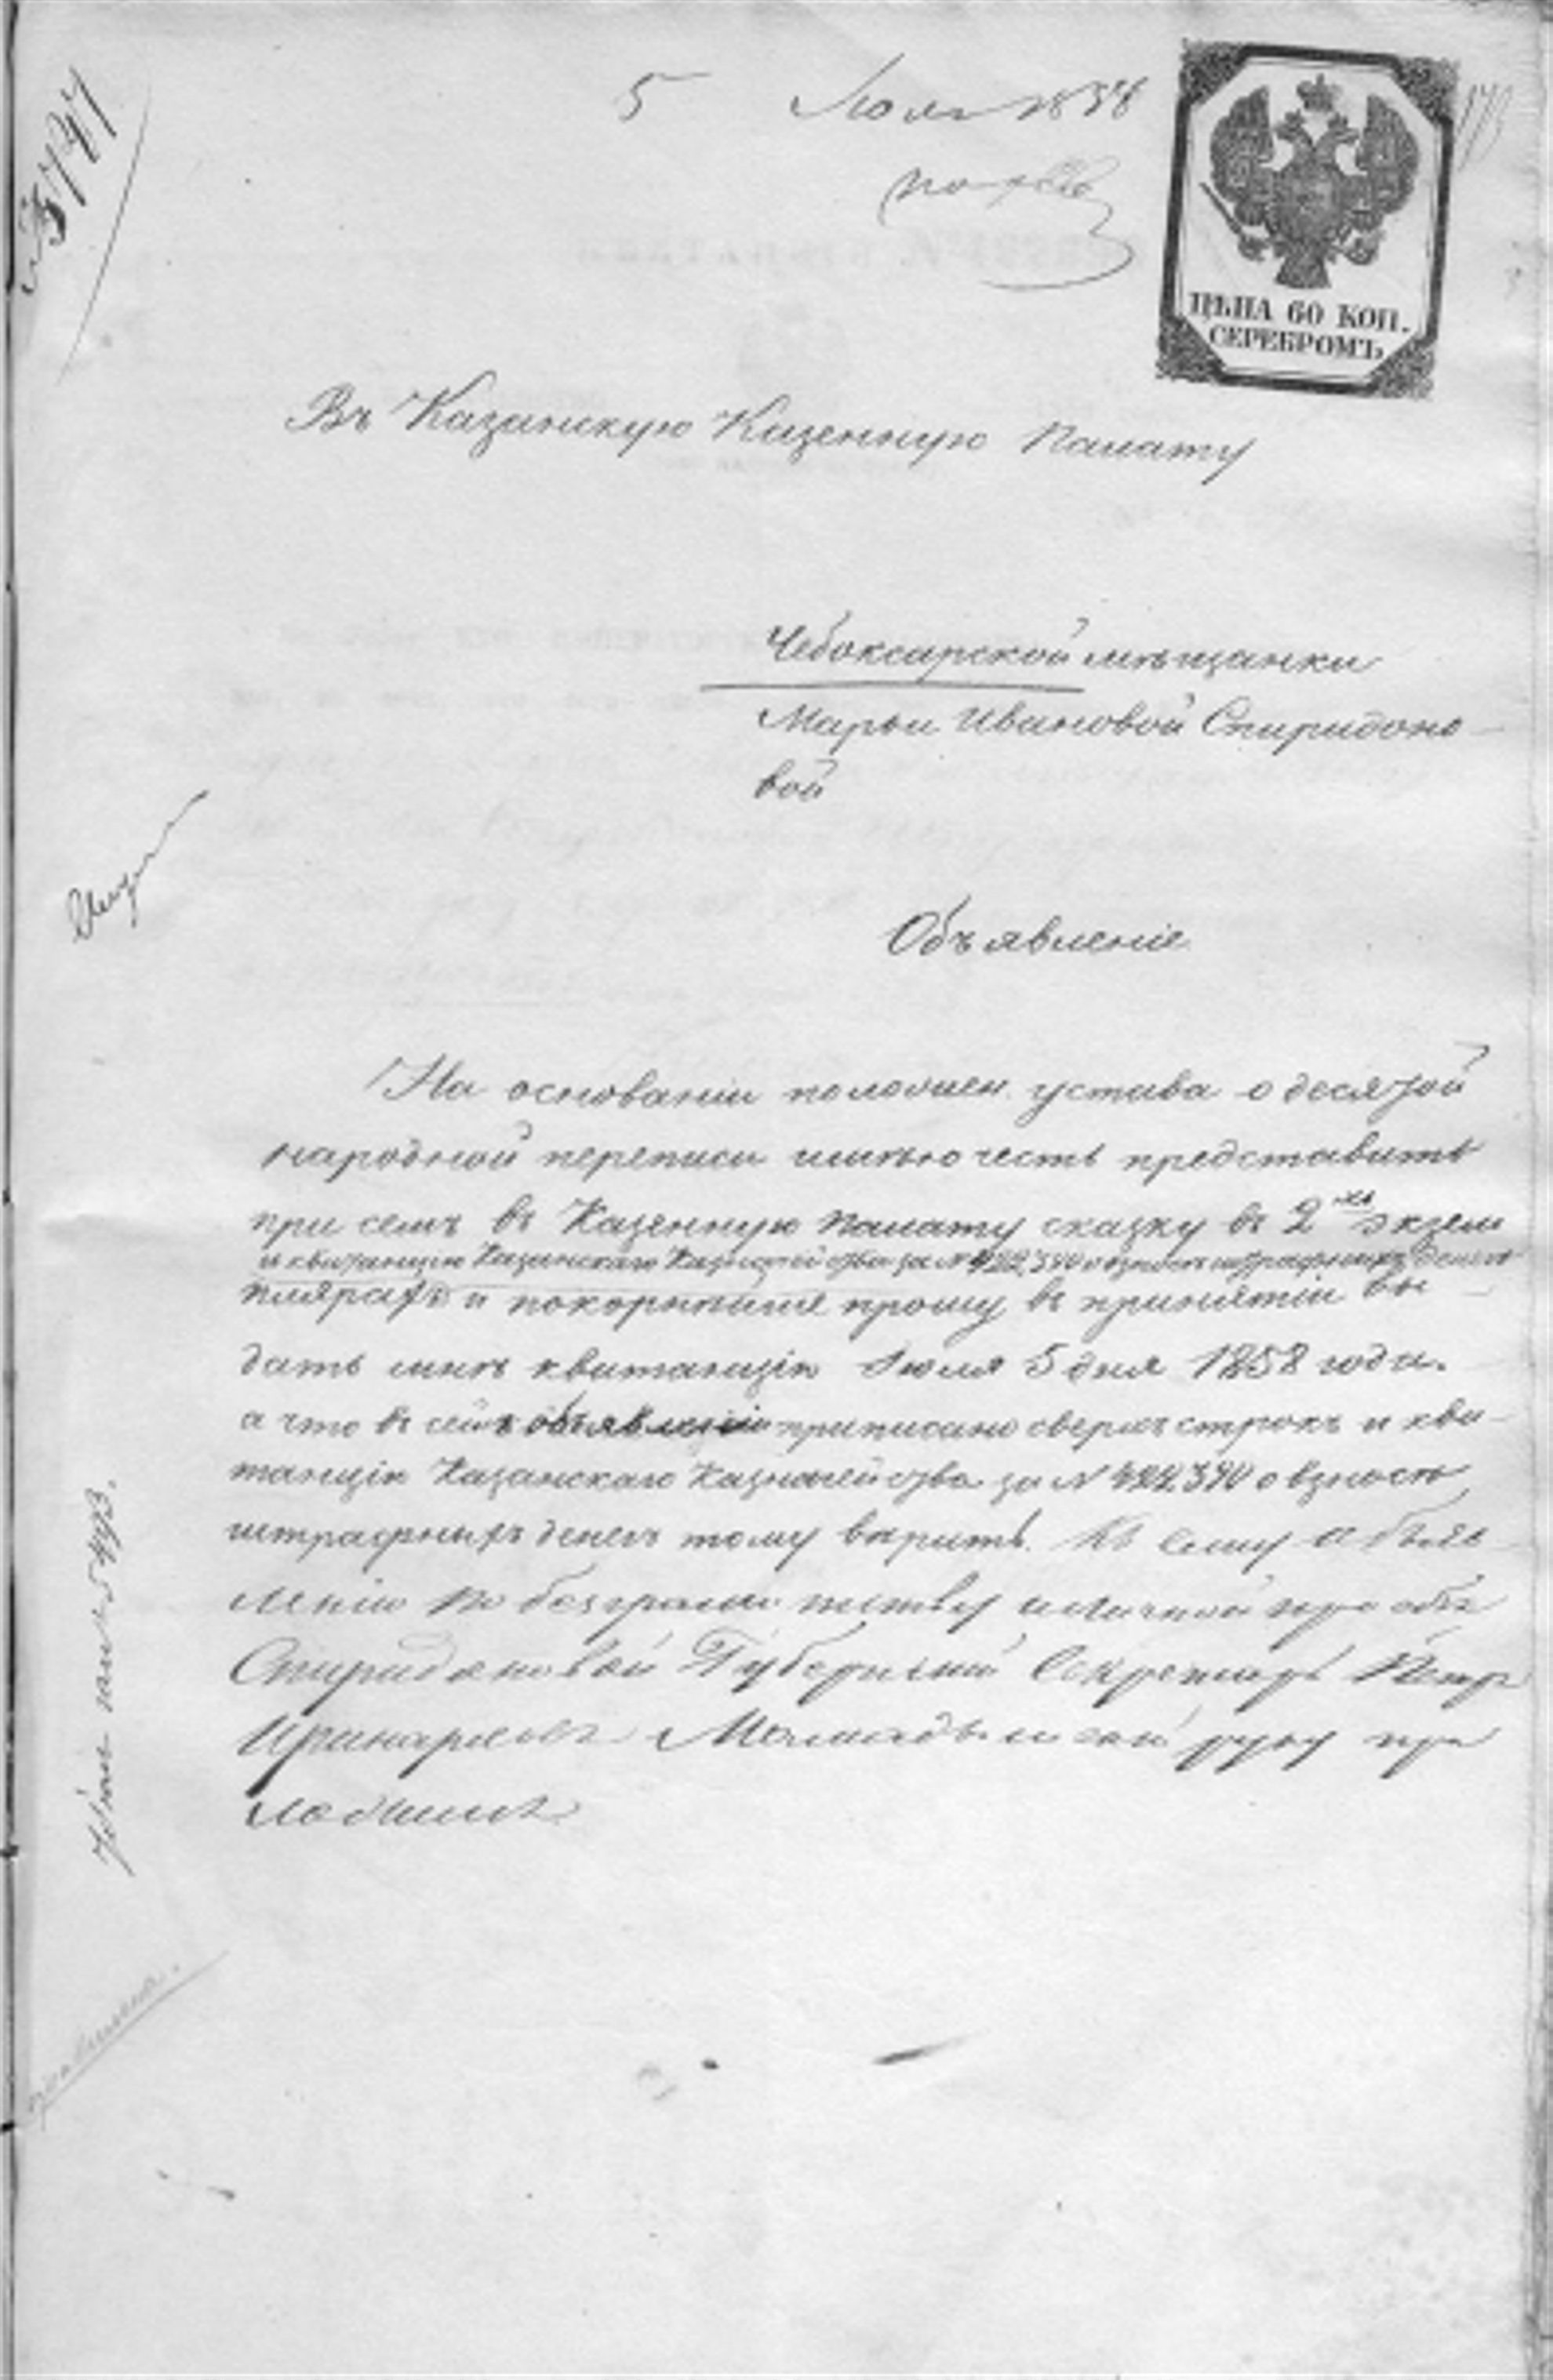 5 Июля 1858
ЦѢНА 60 КОП.
СЕРЕБРОМЪ.
Въ Казанскую Казенную Палату
Чебоксарской мѣщанки
Марьи Ивановой Спиридоно-
вой
Объявленіе
На основаніи положен. устава о десятой
народной переписи имѣю честь представить
при семъ въ Казенную Палату сказку въ 2хъ экзем
и квитанцію Казанскаго Казначейства за № 422,390 о взносѣ штрафныхъ денегъ
плярахъ и покорнѣйше прошу въ принятіи вы-
дать мнѣ квитанцію Іюля 5 дня 1858 года.
а что въ семъ объявленіи приписано сверхъ строкъ и кви-
танцію Казанскаго Казначейства за № 422390 о взносѣ
штрафныхъ денегъ тому вѣрить. Къ сему объяв
ленію по безграмотству и личной просьбѣ
Спиридоновой Губернскій Секретарь Петръ
руку при
ложилъ